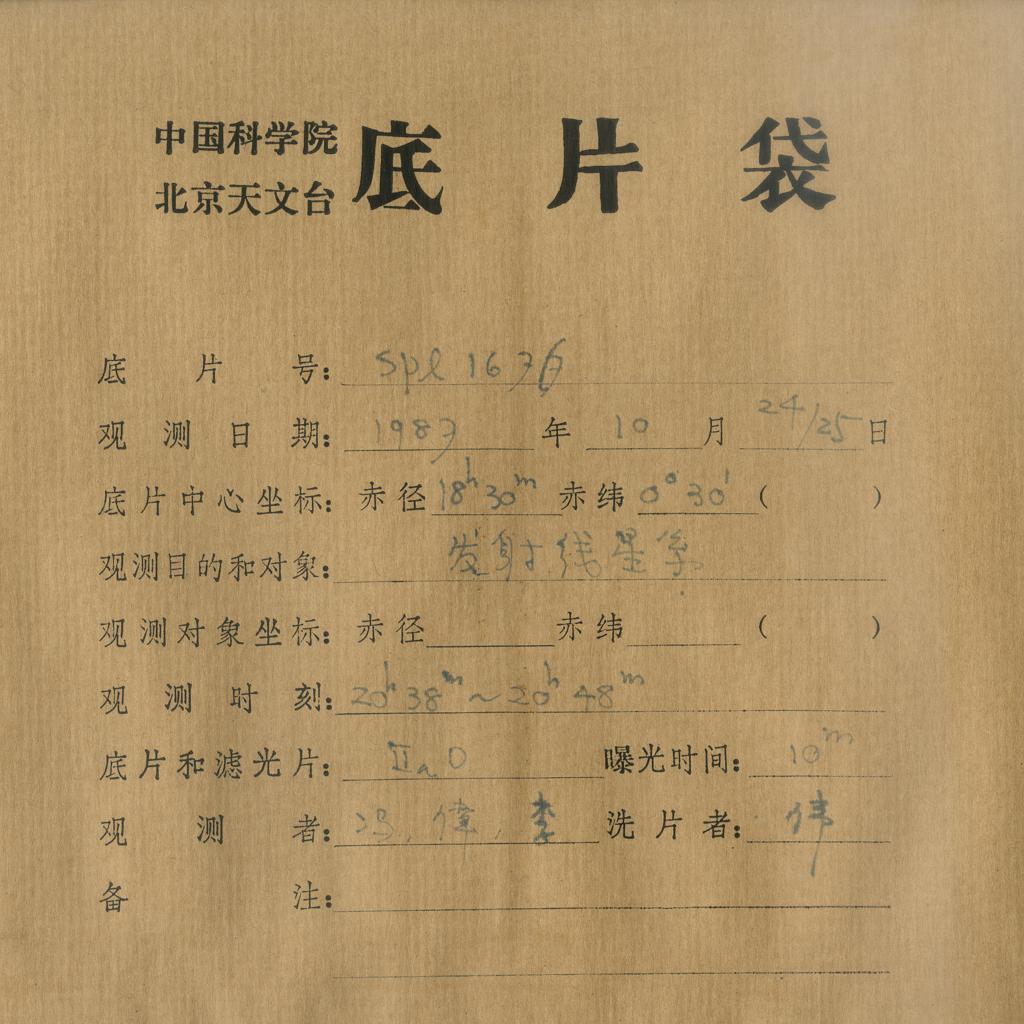 中国科学院
北京天文台 底片袋
底片号: Spl 1636
观测日期: 1983 年 10 月 24/25 日
底片中心坐标: 赤径 18h30m 赤纬 0°30' ( )
观测目的和对象: 发射线星系
观测对象坐标: 赤径 赤纬 ( )
观测时刻: 20h38m~20h48m
底片和滤光片: IIaO 曝光时间: 10m
观测者: 冯,偉,李 洗片者: 伟
备注: